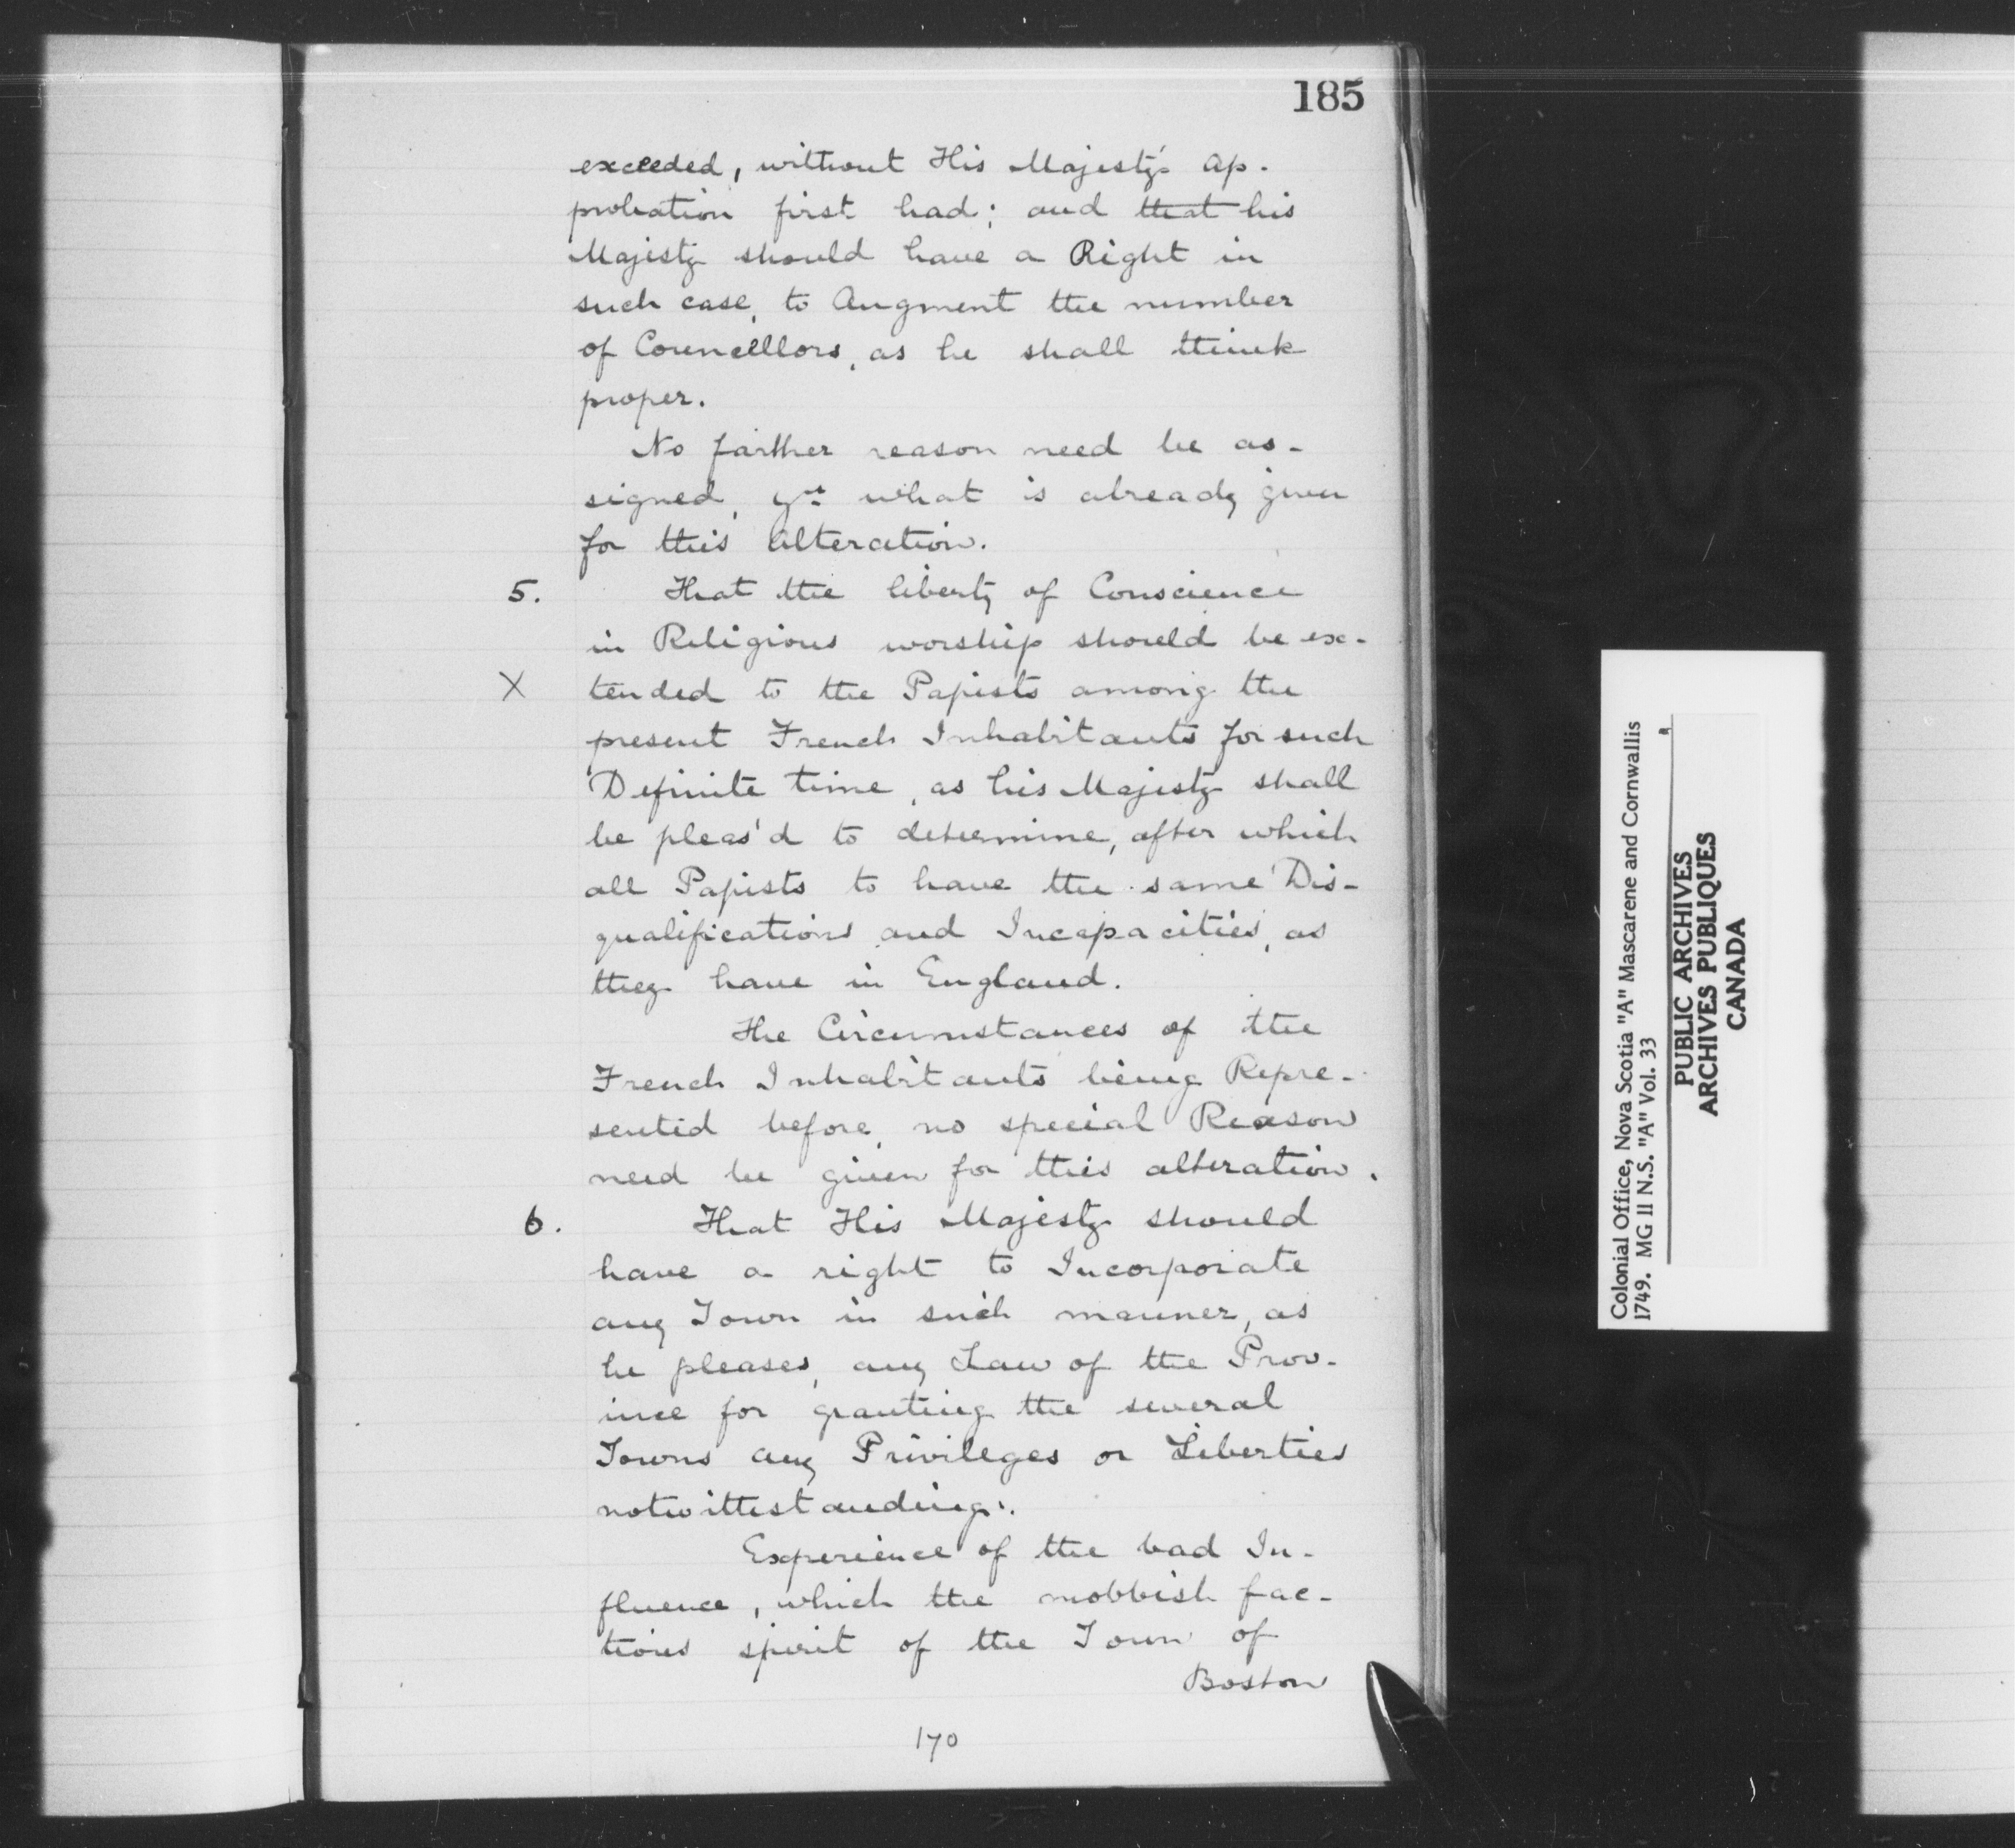 185
exceeded, without His Majesty's Ap-
probation first had; and that his
Majesty should have a Right in
such case, to Augment the number
of Councelllors, as he shall think
proper.
No farther reason need be as-
signed, yn what is already given
for this Alteration.
5. That the liberty of Conscience
in Religious worship should be ex-
X tended to the Papists among the
present French Inhabitants for such
Definite time, as his Majesty shall
be pleas'd to determine, after which
all Papists to have the same Dis-
qualifications and Incapacities, as
they have in England.
The Circumstances of the
French Inhabitants being Repre-
sented before, no special Reason
need be given for this alteration.
6. That His Majesty should
have a right to Incorporate
any Town in such manner, as
he pleases, any Law of the Prov-
ince for granting the several
Towns any Privileges or Liberties
notwithstanding.
Experience of the bad In-
fluence, which the mobbish fac-
tious spirit of the Town of
Boston
170
Colonial Office, Nova Scotia "A" Mascarene and Cornwallis
1749. MG II N.S. "A" Vol. 33
PUBLIC ARCHIVES
ARCHIVES PUBLIQUES
CANADA